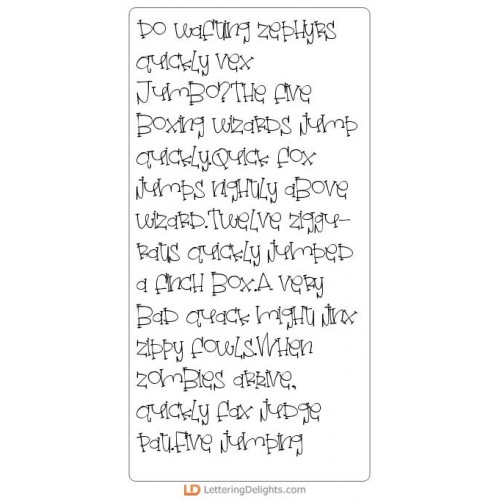 Do wafting zephyrs
quickly vex
Jumbo?The five
boxing wizards jump
quickly.Quick fox
jumps nightly above
wizard.Twelve ziggu-
rats quickly jumped
a finch box.A very
bad quack might jinx
zippy fowls.When
zombies arrive,
quickly fax judge
Patt.Five jumping
LD LetteringDelights.com